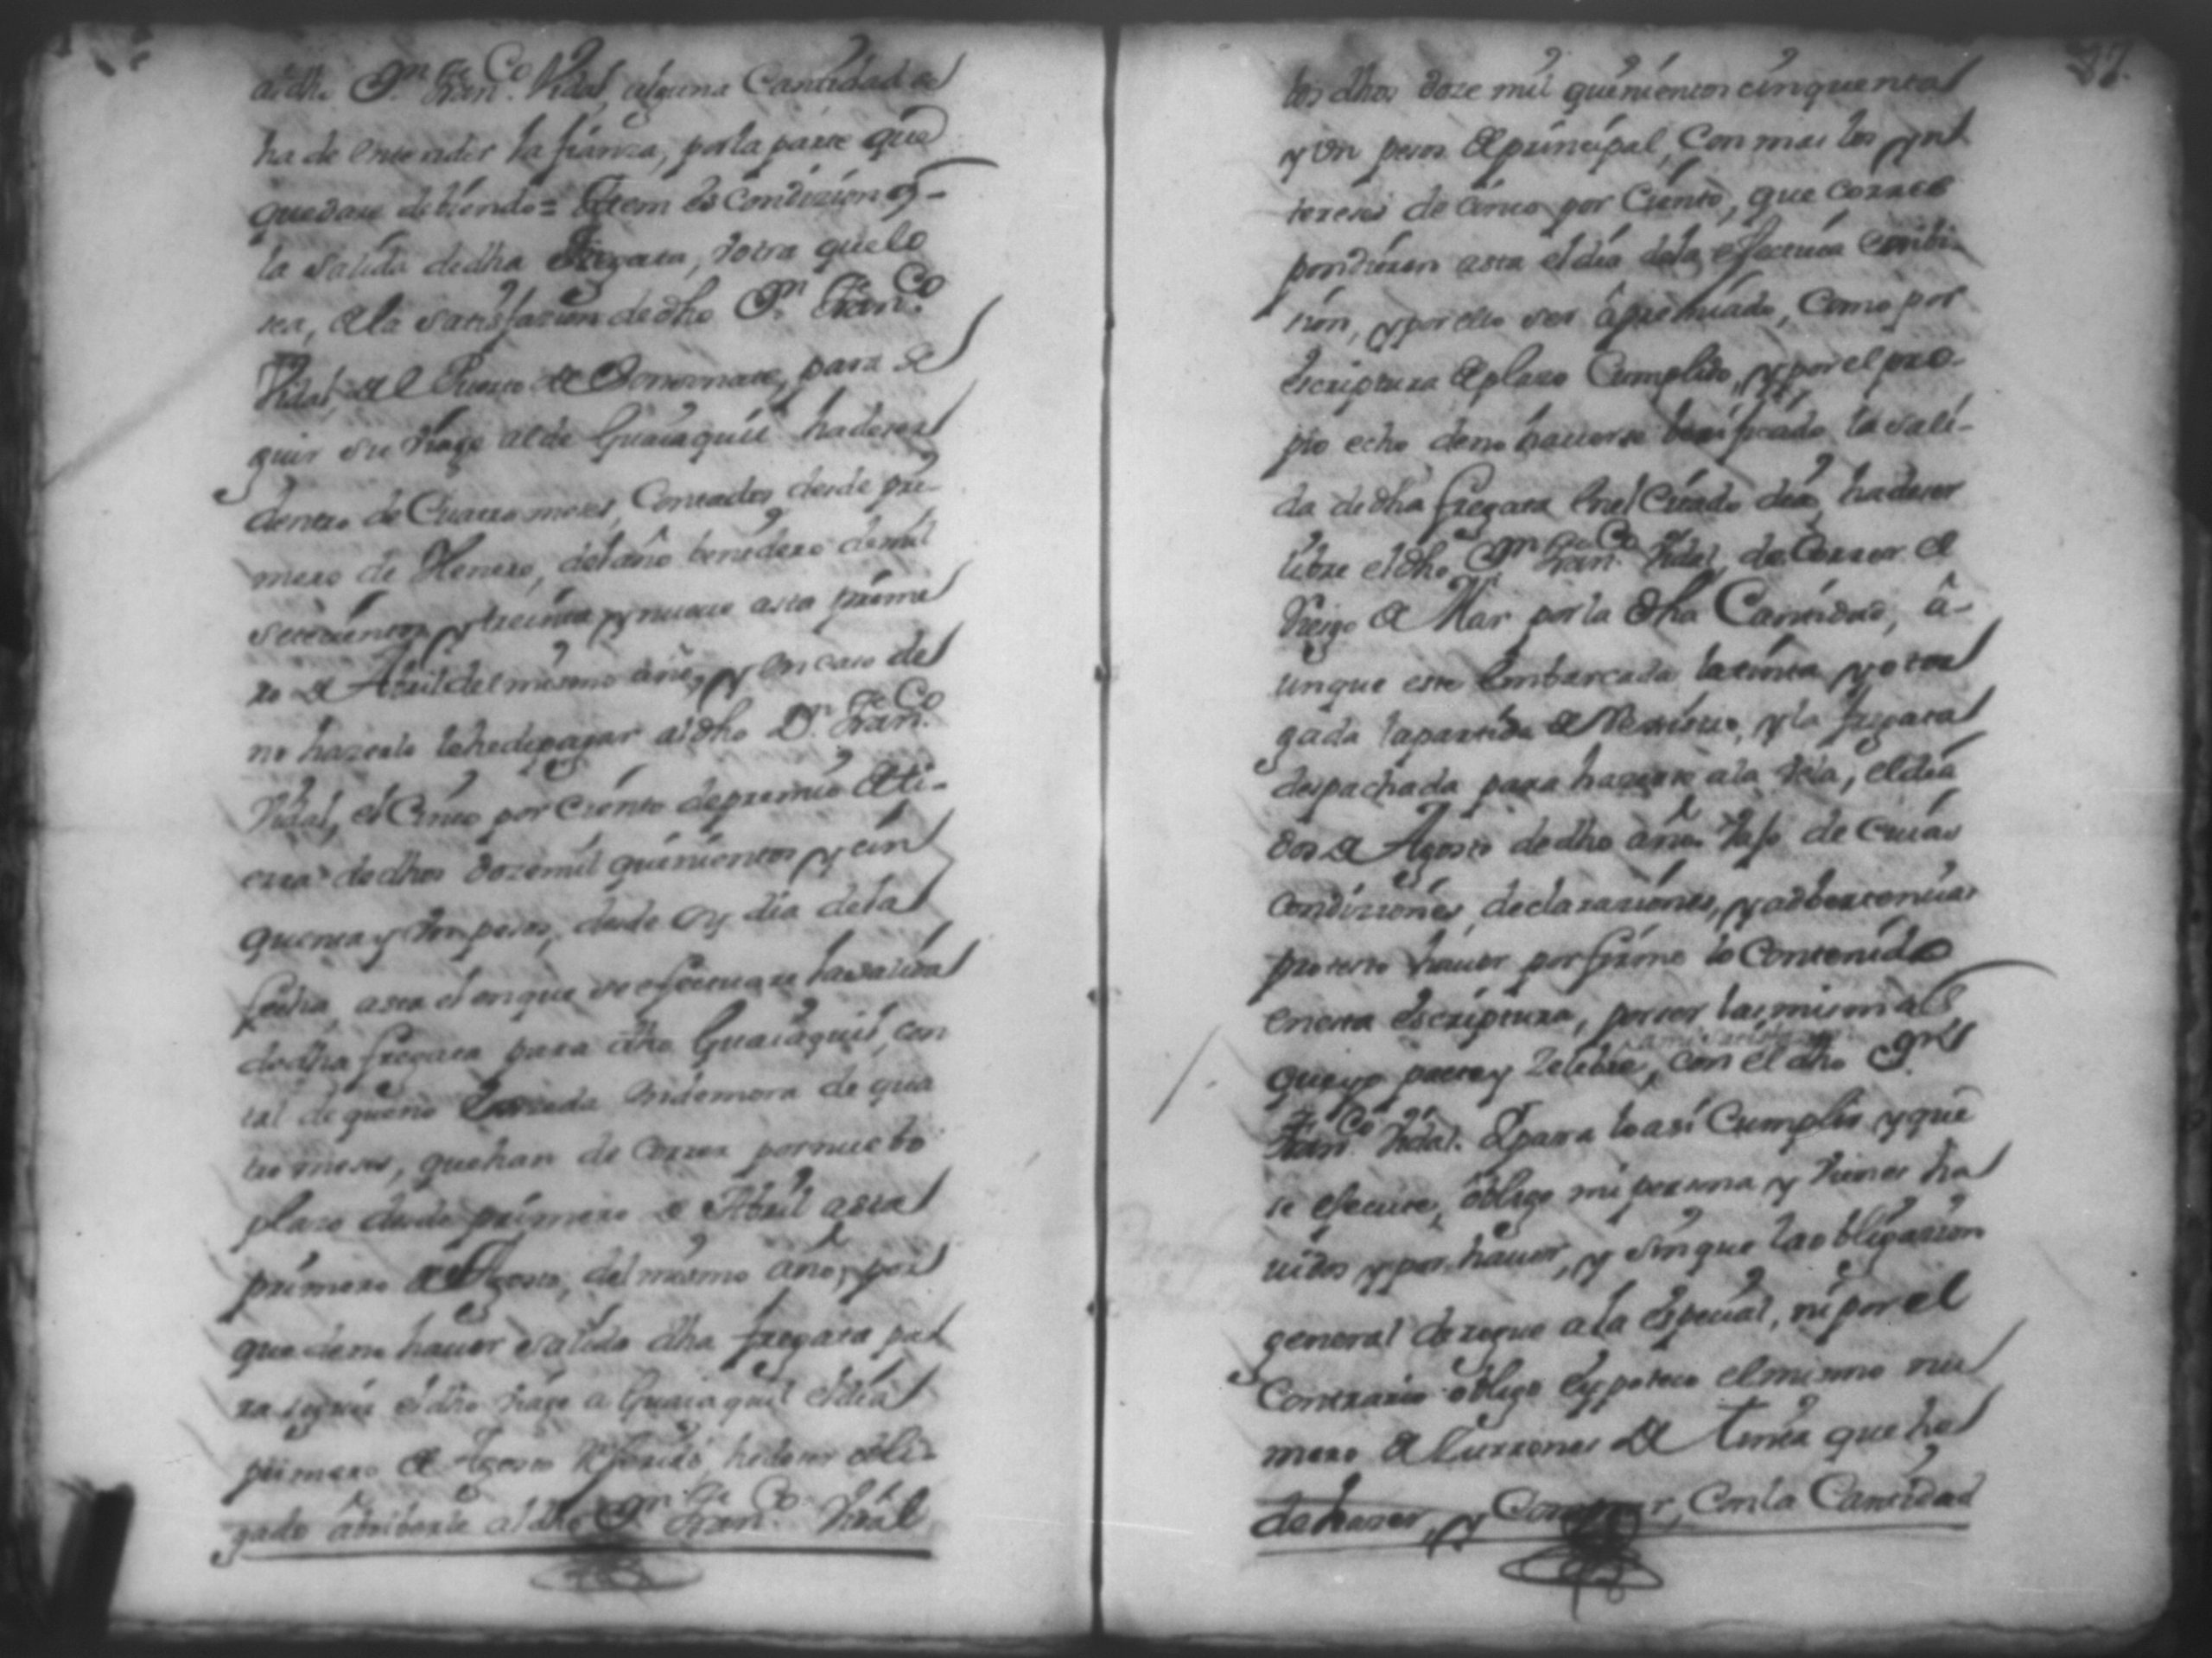 al dho Dn. Franco. Vidal, alguna Cantidad a
ha de entender la fianza, por la parte que
quedare debiendo = Ytem es condizion q-
la salida de dha Fregata, v otra que lo
sea, a la satisfazion de dho Dn. Franco.
Vidal, del Puerto de Sonsonate, para se
guir su viage al de Guaiaquil ha de ser
dentro de Cuatro meses, Contados desde pri-
mero de Henero, del año benidero de mil
setecientos y treinta y nueue asta prime
ro de Abril del mismo año, y en caso de
no hazerlo le he de pagar al dho Dn. Franco.
Vidal, el Cinco por Ciento de premio de ti-
erra de dhos doze mil quinientos y cin
quenta y vn pesos, desde oy dia de la
fecha asta el en que se efectuare la salida
de dha fregata para dho Guaiaquil, con
tal de que no exceda mi demora de qua
tro meses, que han de correr por nuebo
plazo desde primero de Abril asta
primero de Agosto, del mismo año, por
que de no hauer salido dha fregata pa
ra seguir el dho viage a Guaiaquil el dia
primero de Agosto referido he de ser obli-
gado a debolberle al dho Dn. Franco. Vidal
37.
los dhos doze mil quinientos cinquenta
y vn pesos de principal, Con mas los yn
tereses de cinco por Ciento, que corres
pondieren asta el dia de la efectiua exibi-
zion, y por ello ser apremiado, Como por
escriptura de plazo Cumplido, y por el pro-
pio echo de no hauerse berificado la sali-
da de dha fregata en el Citado dia, ha de ser
libre el dho Dn. Franco. Vidal, de Correr el
Riesgo de Mar por la dha Cantidad, a-
unque este embarcada la tinta y otor
gada la partida de Rexistro, y la fregata
despachada para hazerse a la Vela, el dia
dos de Agosto de dho año. Vajo de cuias
condiziones, declaraziones, y adbertencias
protesto hauer por firme lo Contenido
en esta escriptura, por ser las mismas
que yo pacte y zelebre, con el dho Dn.
Franco. Vidal. Y para lo asi Cumplir y que
se efecute, obligo mi persona y vienes ha
uidos y por hauer, y sin que la obligazion
general derogue a la espezial, ni por el
Contrario obligo e ypoteco el mismo nu
mero de Zurrones de tinta que he
de hazer, y Comprar, Con la Cantidad